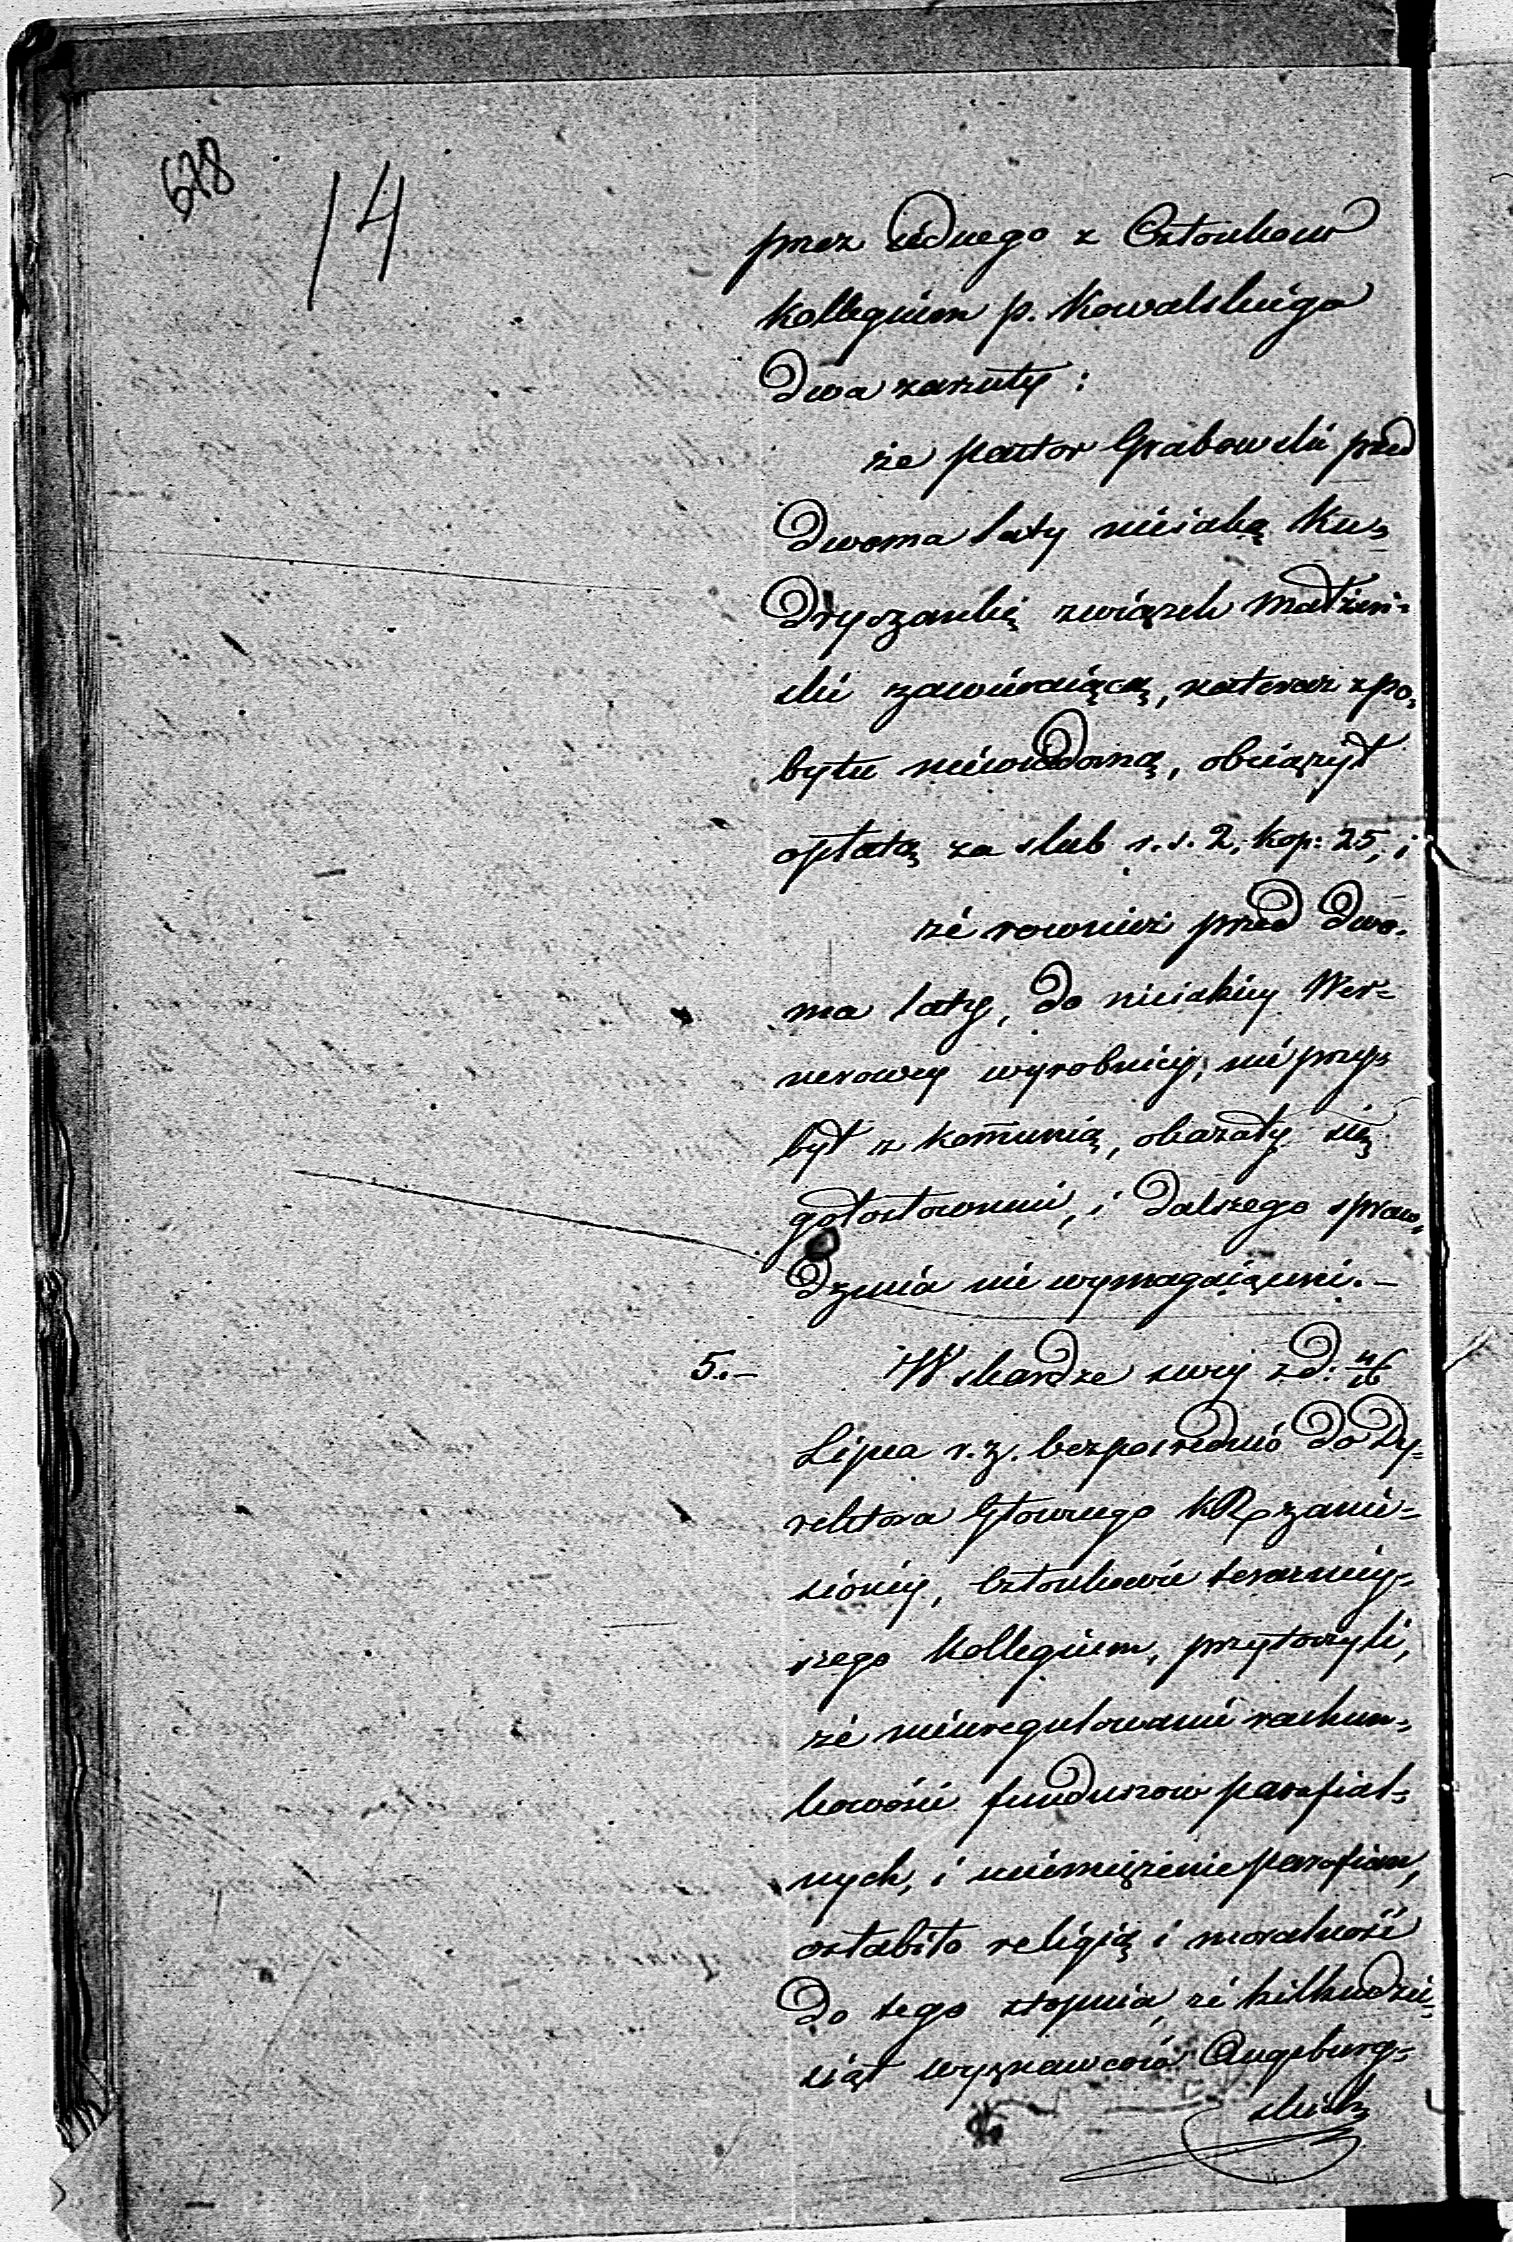 678
14
przez iednego z Członkow
kollegium p. Kowalskiego
dwa zarzuty :
że pastor Grabowski przed
dwoma laty nieiaką Ku=
dryszankę związek małżeń=
ski zawieraiącą, nateraz z po=
bytu niewiadomą, obciążył
opłatą za slub r. s. 2, kop: 25, i
że rownież przed dwo=
ma laty, do nieiakiey Wer=
nerowey wyrobnicy, nie przy=
był z kom̄unią, okazały się
gołosłownemi, i dalszego spraw=
dzenia nie wymagaiącemi. —
5. — W skardze swey z d: 4/16
Lipca r. z. bezposrednio do Dy=
rektora Głownego KR zanie=
sioney, Członkowie teraźniey=
szego kollegium, przytoczyli,
że nieuregulowanie rachun=
kowości funduszow parafial=
nych, i uciemiężenie parafian,
osłabiło religią i moralność
do tego stopnia, że kilkudzie=
siąt wyznawców Augsburg=
skich